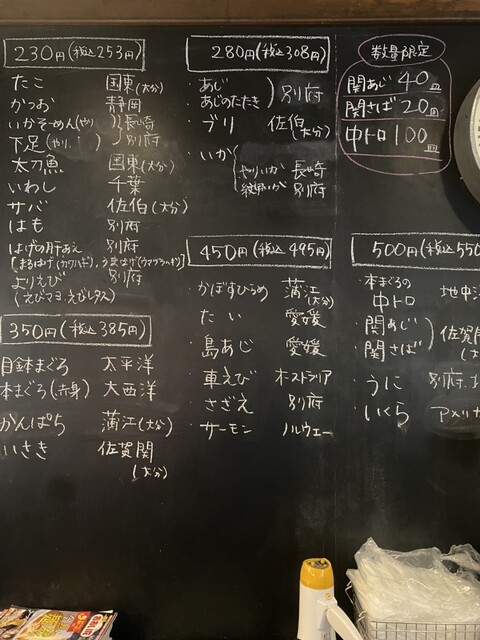 230円(税込253円)
たこ 国東(大分)
かつお 静岡
いかそーめん(やり) 長崎
下足(やり、 ) 別府
太刀魚 国東(大分)
いわし 千葉
サバ 佐伯(大分)
はも 別府
はげの肝あえ 別府
【まるはげ(カワハギ)、うまはげ(ウマヅラハギ)】
よりえび 別府
(えびマヨ、えびレタス)
350円(税込385円)
目鉢まぐろ 太平洋
本まぐろ(赤身) 大西洋
かんぱち 蒲江(大分)
いさき 佐賀関
(大分)
280円(税込308円)
・あじ
・あじのたたき 別府
・ブリ 佐伯(大分)
・いか
やりいか 長崎
別府
450円(税込495円)
・かぼすひらめ 蒲江
(大分)
・たい 愛媛
・島あじ 愛媛
・車えび オーストラリア
・さざえ 別府
・サーモン ノルウェー
数量限定
関あじ 40皿
関さば 20皿
中トロ 100皿
500円(税込550
・本まぐろの
中トロ 地中
・関あじ
・関さば 佐賀
(大
・うに 別府
・いくら アメリカ